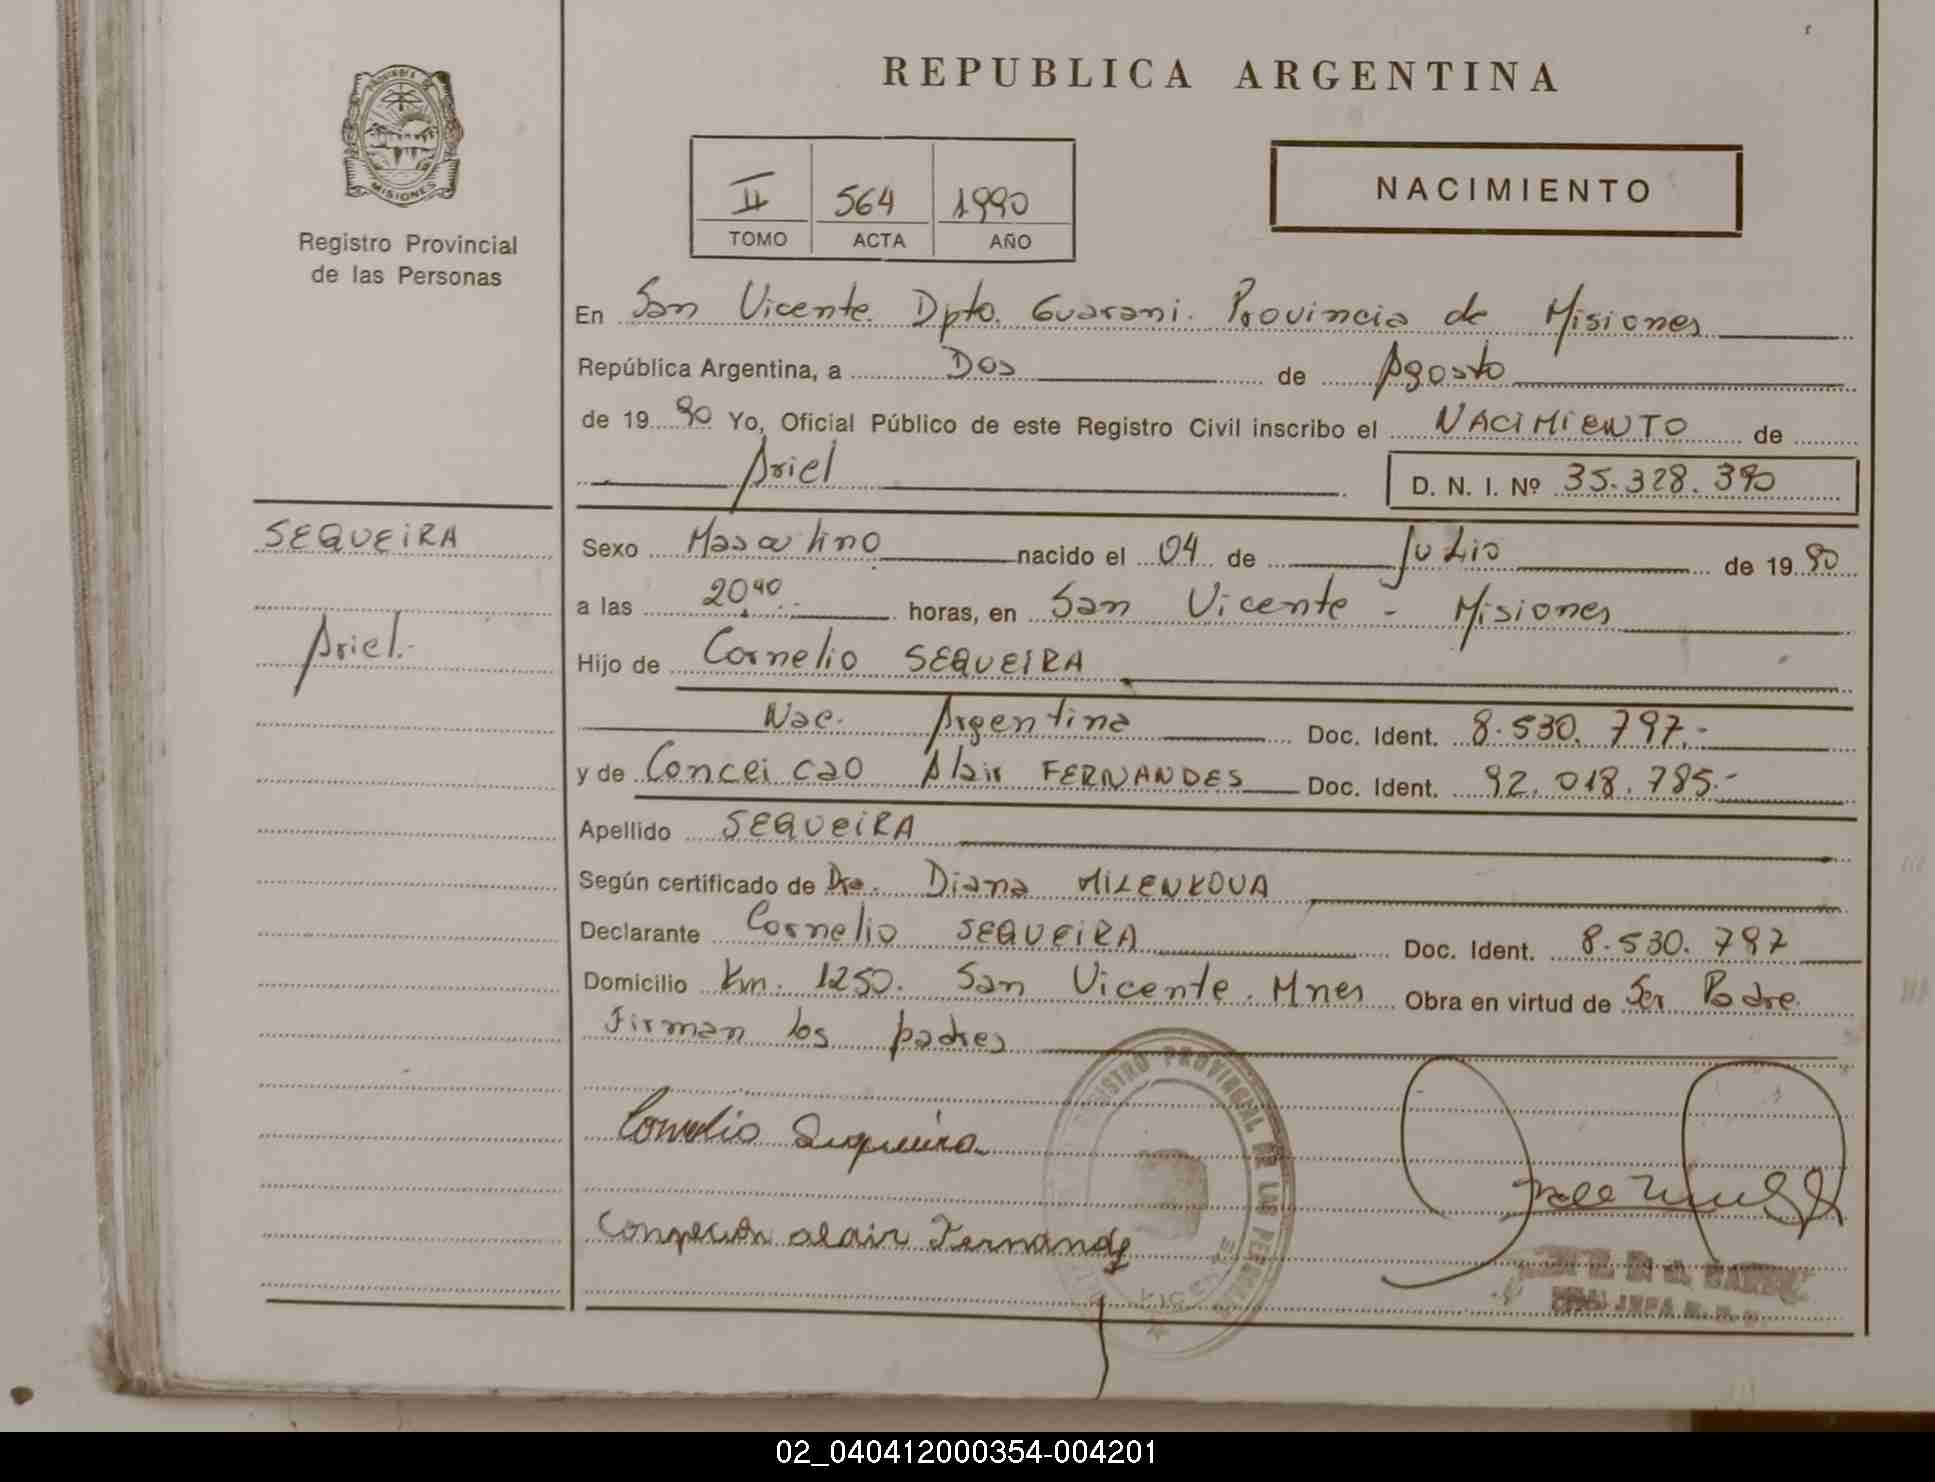 PROVINCIA DE
MISIONES
Registro Provincial
de las Personas
SEQUEIRA
Ariel.-
REPUBLICA ARGENTINA
II 564 1990
TOMO ACTA AÑO
NACIMIENTO
En San Vicente. Dpto. Guarani. Provincia de Misiones
República Argentina, a Dos de Agosto
de 19 90 Yo, Oficial Público de este Registro Civil inscribo el NACIMIENTO de
Ariel D. N. I. Nº 35.328.390
Sexo Masculino nacido el 04 de Julio de 19 90
a las 20,40 horas, en San Vicente - Misiones
Hijo de Cornelio SEQUEIRA
Nac. Argentina Doc. Ident. 8.530.797.-
y de Conceicao Alair FERNANDES Doc. Ident. 92.018.785.-
Apellido SEQUEIRA
Según certificado de Dra. Diana MILENKOVA
Declarante Cornelio SEQUEIRA Doc. Ident. 8.530.797
Domicilio Km. 1250. San Vicente. Mnes Obra en virtud de Ser Padre.
Firman los padres
Cornelio Sequeira
alair Fernandes
REGISTRO PROVINCIAL DE LAS PERSONAS
02_040412000354-004201